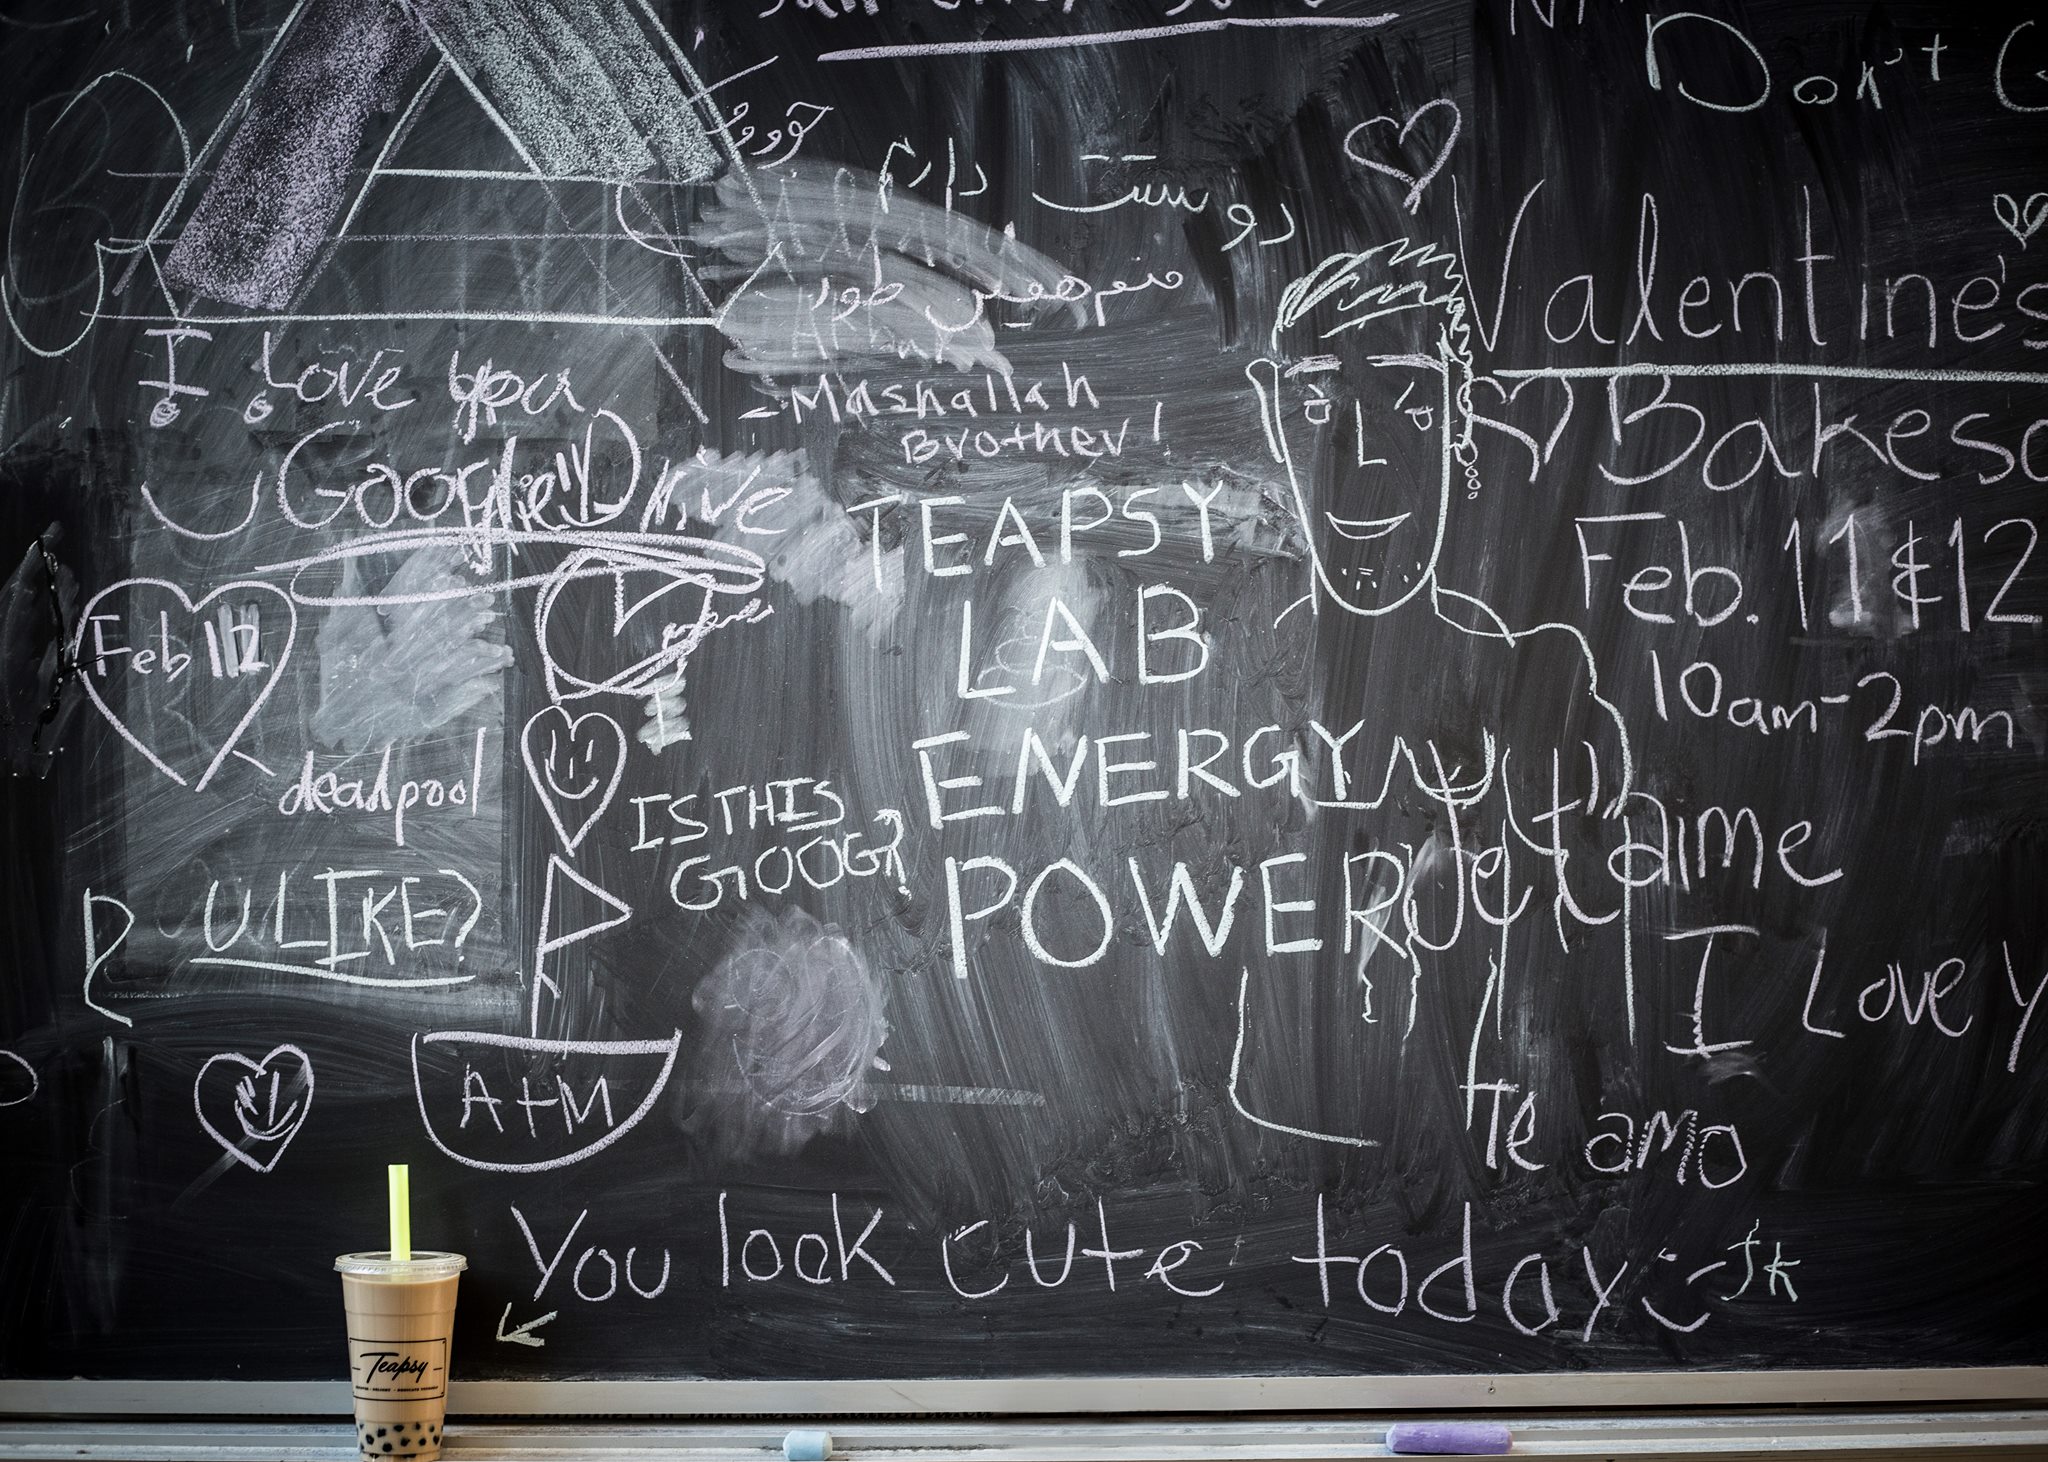 Don't
دوست دارم
Valentine's
I Love you
Mashallah
Brother!
Google Drive
Feb. 11 & 12
10am-2pm
TEAPSY
LAB
ENERGY
POWER
Feb 12
deadpool
IS THIS
GOOG?
U LIKE?
Je t'aime
I Love
A+M
te amo
You look cute today :) jk
Teapsy